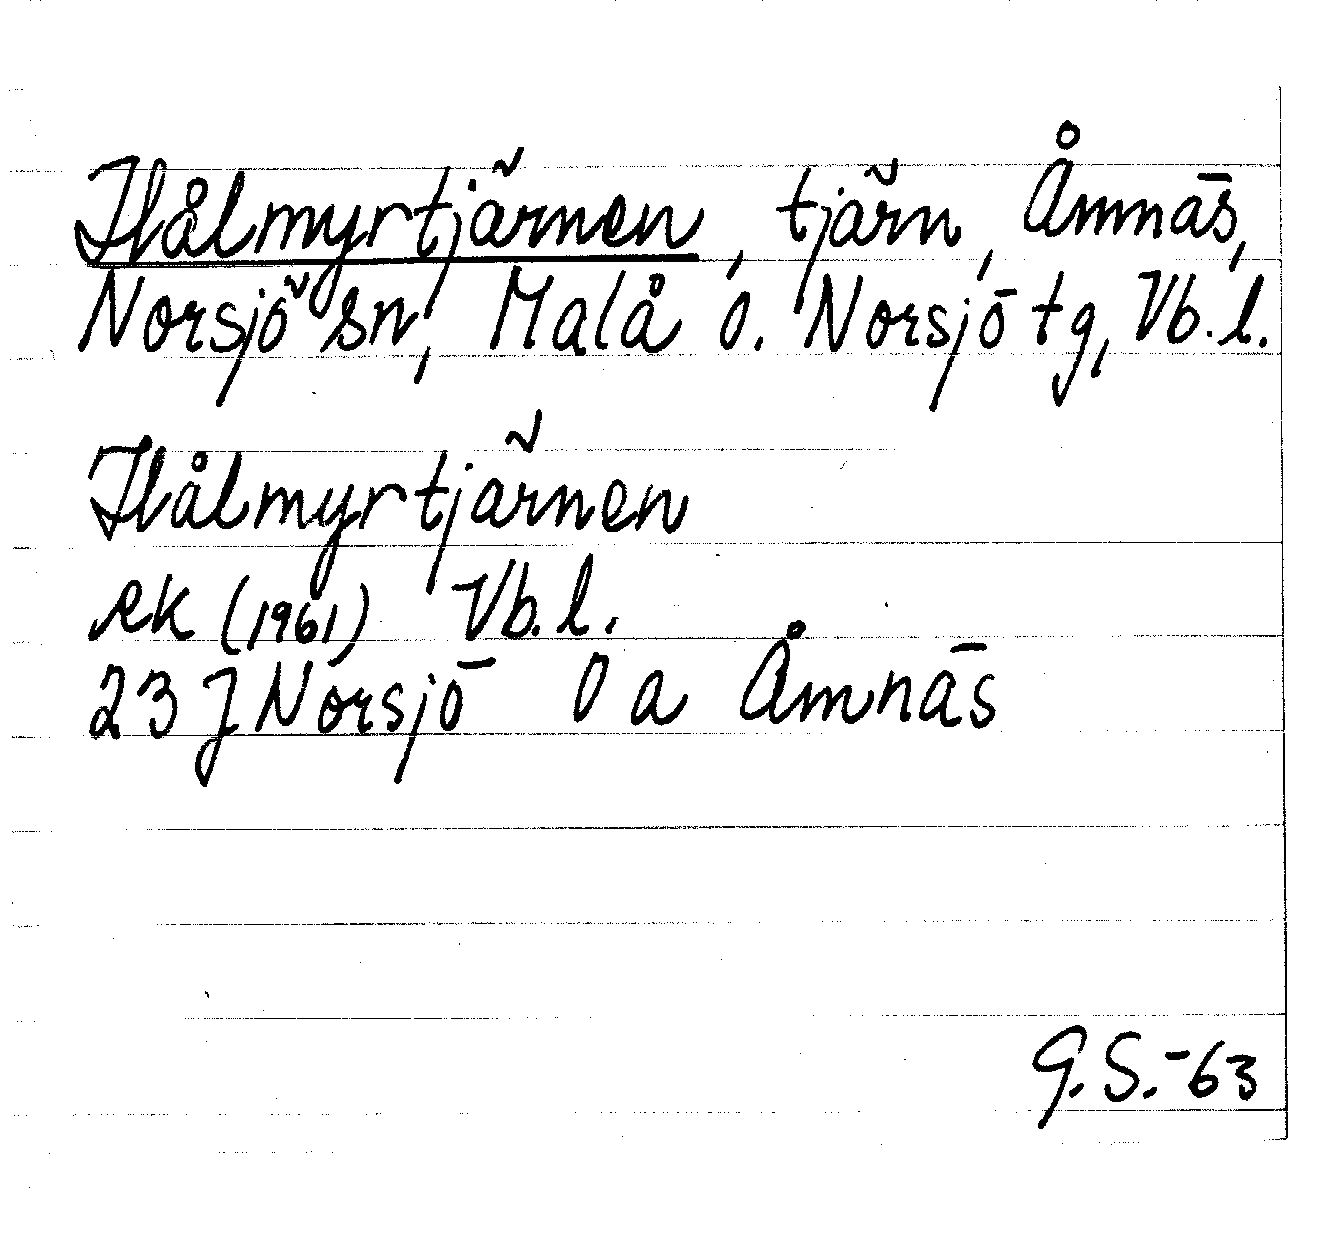 Hålmyrtjärnen, tjärn, Åmnäs,
Norsjö sn, Malå o. Norsjö tg, Vb.l.
Hålmyrtjärnen
ek (1961) Vb.l.
23 J Norsjö 0 a Åmnäs
G.S.-63